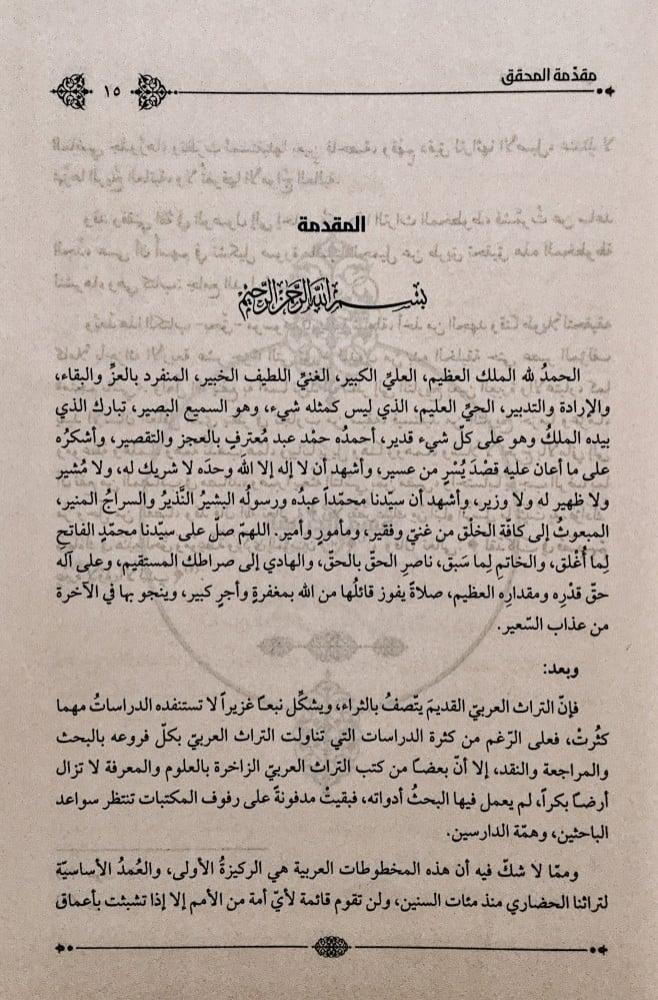 مقدّمة المحقق
١٥
المقدمة
بسم الله الرحمن الرحيم
الحمدُ لله الملك العظيم، العليِّ الكبير، الغنيِّ اللطيف الخبير، المنفرد بالعزِّ والبقاء،
والإرادة والتدبير، الحيِّ العليم، الذي ليس كمثله شيء، وهو السميع البصير، تبارك الذي
بيده الملكُ وهو على كلّ شيء قدير، أحمدُه حمْد عبد مُعترفٍ بالعجز والتقصير، وأشكرُه
على ما أعان عليه قصْدَ يُسْرٍ من عسير، وأشهد أن لا إله إلا الله وحدَه لا شريك له، ولا مُشير
ولا ظهير له ولا وزير، وأشهد أن سيّدنا محمّداً عبدُه ورسولُه البشيرُ النَّذيرُ والسراجُ المنير،
المبعوثُ إلى كافّة الخلْق من غنيّ وفقير، ومأمورٍ وأمير. اللهمّ صلّ على سيّدنا محمّدٍ الفاتحِ
لِما أُغْلق، والخاتمِ لِما سَبق، ناصرِ الحقّ بالحقّ، والهادي إلى صراطك المستقيم، وعلى آله
حقّ قدْرِه ومقدارِه العظيم، صلاةً يفوز قائلُها من الله بمغفرةٍ وأجرٍ كبير، وينجو بها في الآخرة
من عذاب السّعير.
وبعد:
فإنّ التراث العربيّ القديمَ يتّصفُ بالثراء، ويشكِّل نبعاً غزيراً لا تستنفده الدراساتُ مهما
كثُرتْ، فعلى الرّغم من كثرة الدراسات التي تناولت التراث العربيّ بكلّ فروعه بالبحث
والمراجعة والنقد، إلا أنّ بعضاً من كتب التراث العربيّ الزاخرة بالعلوم والمعرفة لا تزال
أرضاً بكراً، لم يعمل فيها البحثُ أدواته، فبقيتْ مدفونةً على رفوف المكتبات تنتظر سواعد
الباحثين، وهمّة الدارسين.
وممّا لا شكّ فيه أن هذه المخطوطات العربية هي الركيزةُ الأولى، والعُمدُ الأساسيّة
لتراثنا الحضاري منذ مئات السنين، ولن تقوم قائمة لأيّ أمة من الأمم إلا إذا تشبثت بأعماق